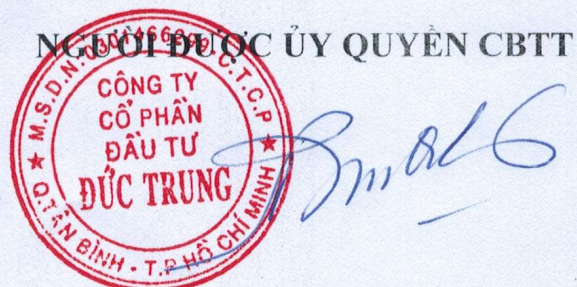 NGƯỜI ĐƯỢC ỦY QUYỀN CBTT
M.S.D.N: 0301466299 C.T.C.P
CÔNG TY
CỔ PHẦN
ĐẦU TƯ
ĐỨC TRUNG
Q.TÂN BÌNH - T.P HỒ CHÍ MINH